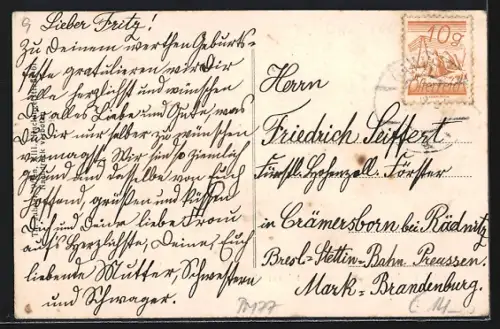 9
Lieber Fritz!
Zu Deinem werthen Geburts-
feste gratulieren wir Dir
alle herzlichst und wünschen
Dir alles Liebe und Gute was
Du Dir nur selber zu wünschen
vermagst. Wir sind so ziemlich
gesund und dasselbe von Euch
hoffend, grüßen und küssen
Dich und Deine liebe Frau
auf's Herzlichste, Deine, Euch
liebende Mutter, Schwestern
und Schwager.
10g
Herrn
Friedrich Seiffert
Fürstl. Hohenzoll. Förster
in Crämersborn bei Rädnitz
Bresl.-Stettin-Bahn Preussen.
Mark-Brandenburg.